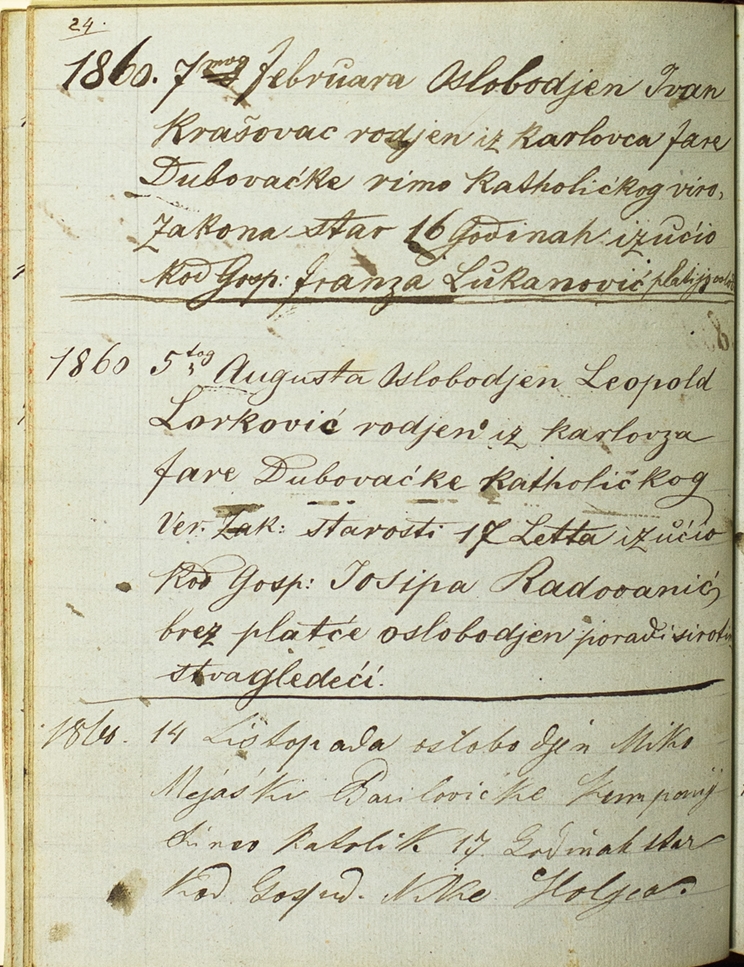 24.
1860. 7mog Februara Oslobodjen Ivan
Krašovac rodjen iz Karlovca fare
Dubovaćke rimo Katholičkog viro,
Zakona star 16 Godinah izučio
kod Gosp: Franza Lukanović
1860 5tog Augusta Oslobodjen Leopold
Lorković rodjen iz Karlovza
fare Dubovaćke Katholičkog
Ver. Zak: starosti 17 Letta izučio
Kod Gosp: Josipa Radovanić,
brez platće oslobodjen poradi siroti
stvagledeći.
1860. 14 Listopada oslobodjen Miko
Mejaški Barilovićke Kumpanij
Katolik 17 Godinah star
Kod Gospod. Mike